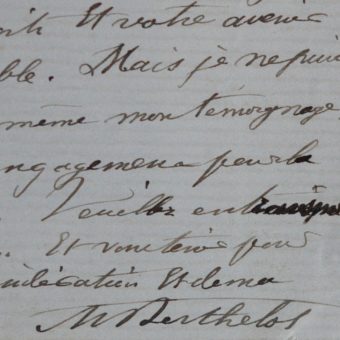 et votre avenir
ble. Mais je ne puis
même mon témoignage
ngagement pour la
Veuillez
. Et vous pour
et de ma
M Berthelot